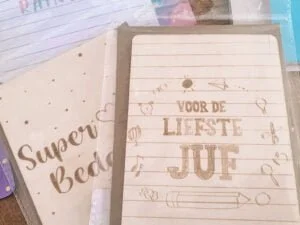 Super
VOOR DE
LIEFSTE
JUF